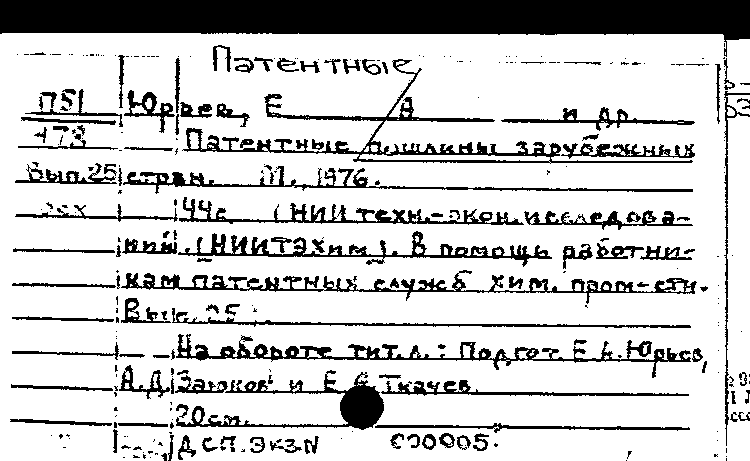 Патентные
П51 Юрьев, Е А и др.
478 Патентные пошлины зарубежных
Вып.25 стран. М., 1976.
44с (НИИ техн.-экон.исследова-
ний.(НИИТЭХим). В помощь работни-
кам патентных служб хим. пром-сти.
Вып. 25
На обороте тит.л.: Подгот Е А.Юрьев,
А.Д. Заюков и Е Ткачев.
20см.
ДСП.ЭКЗN 000005.